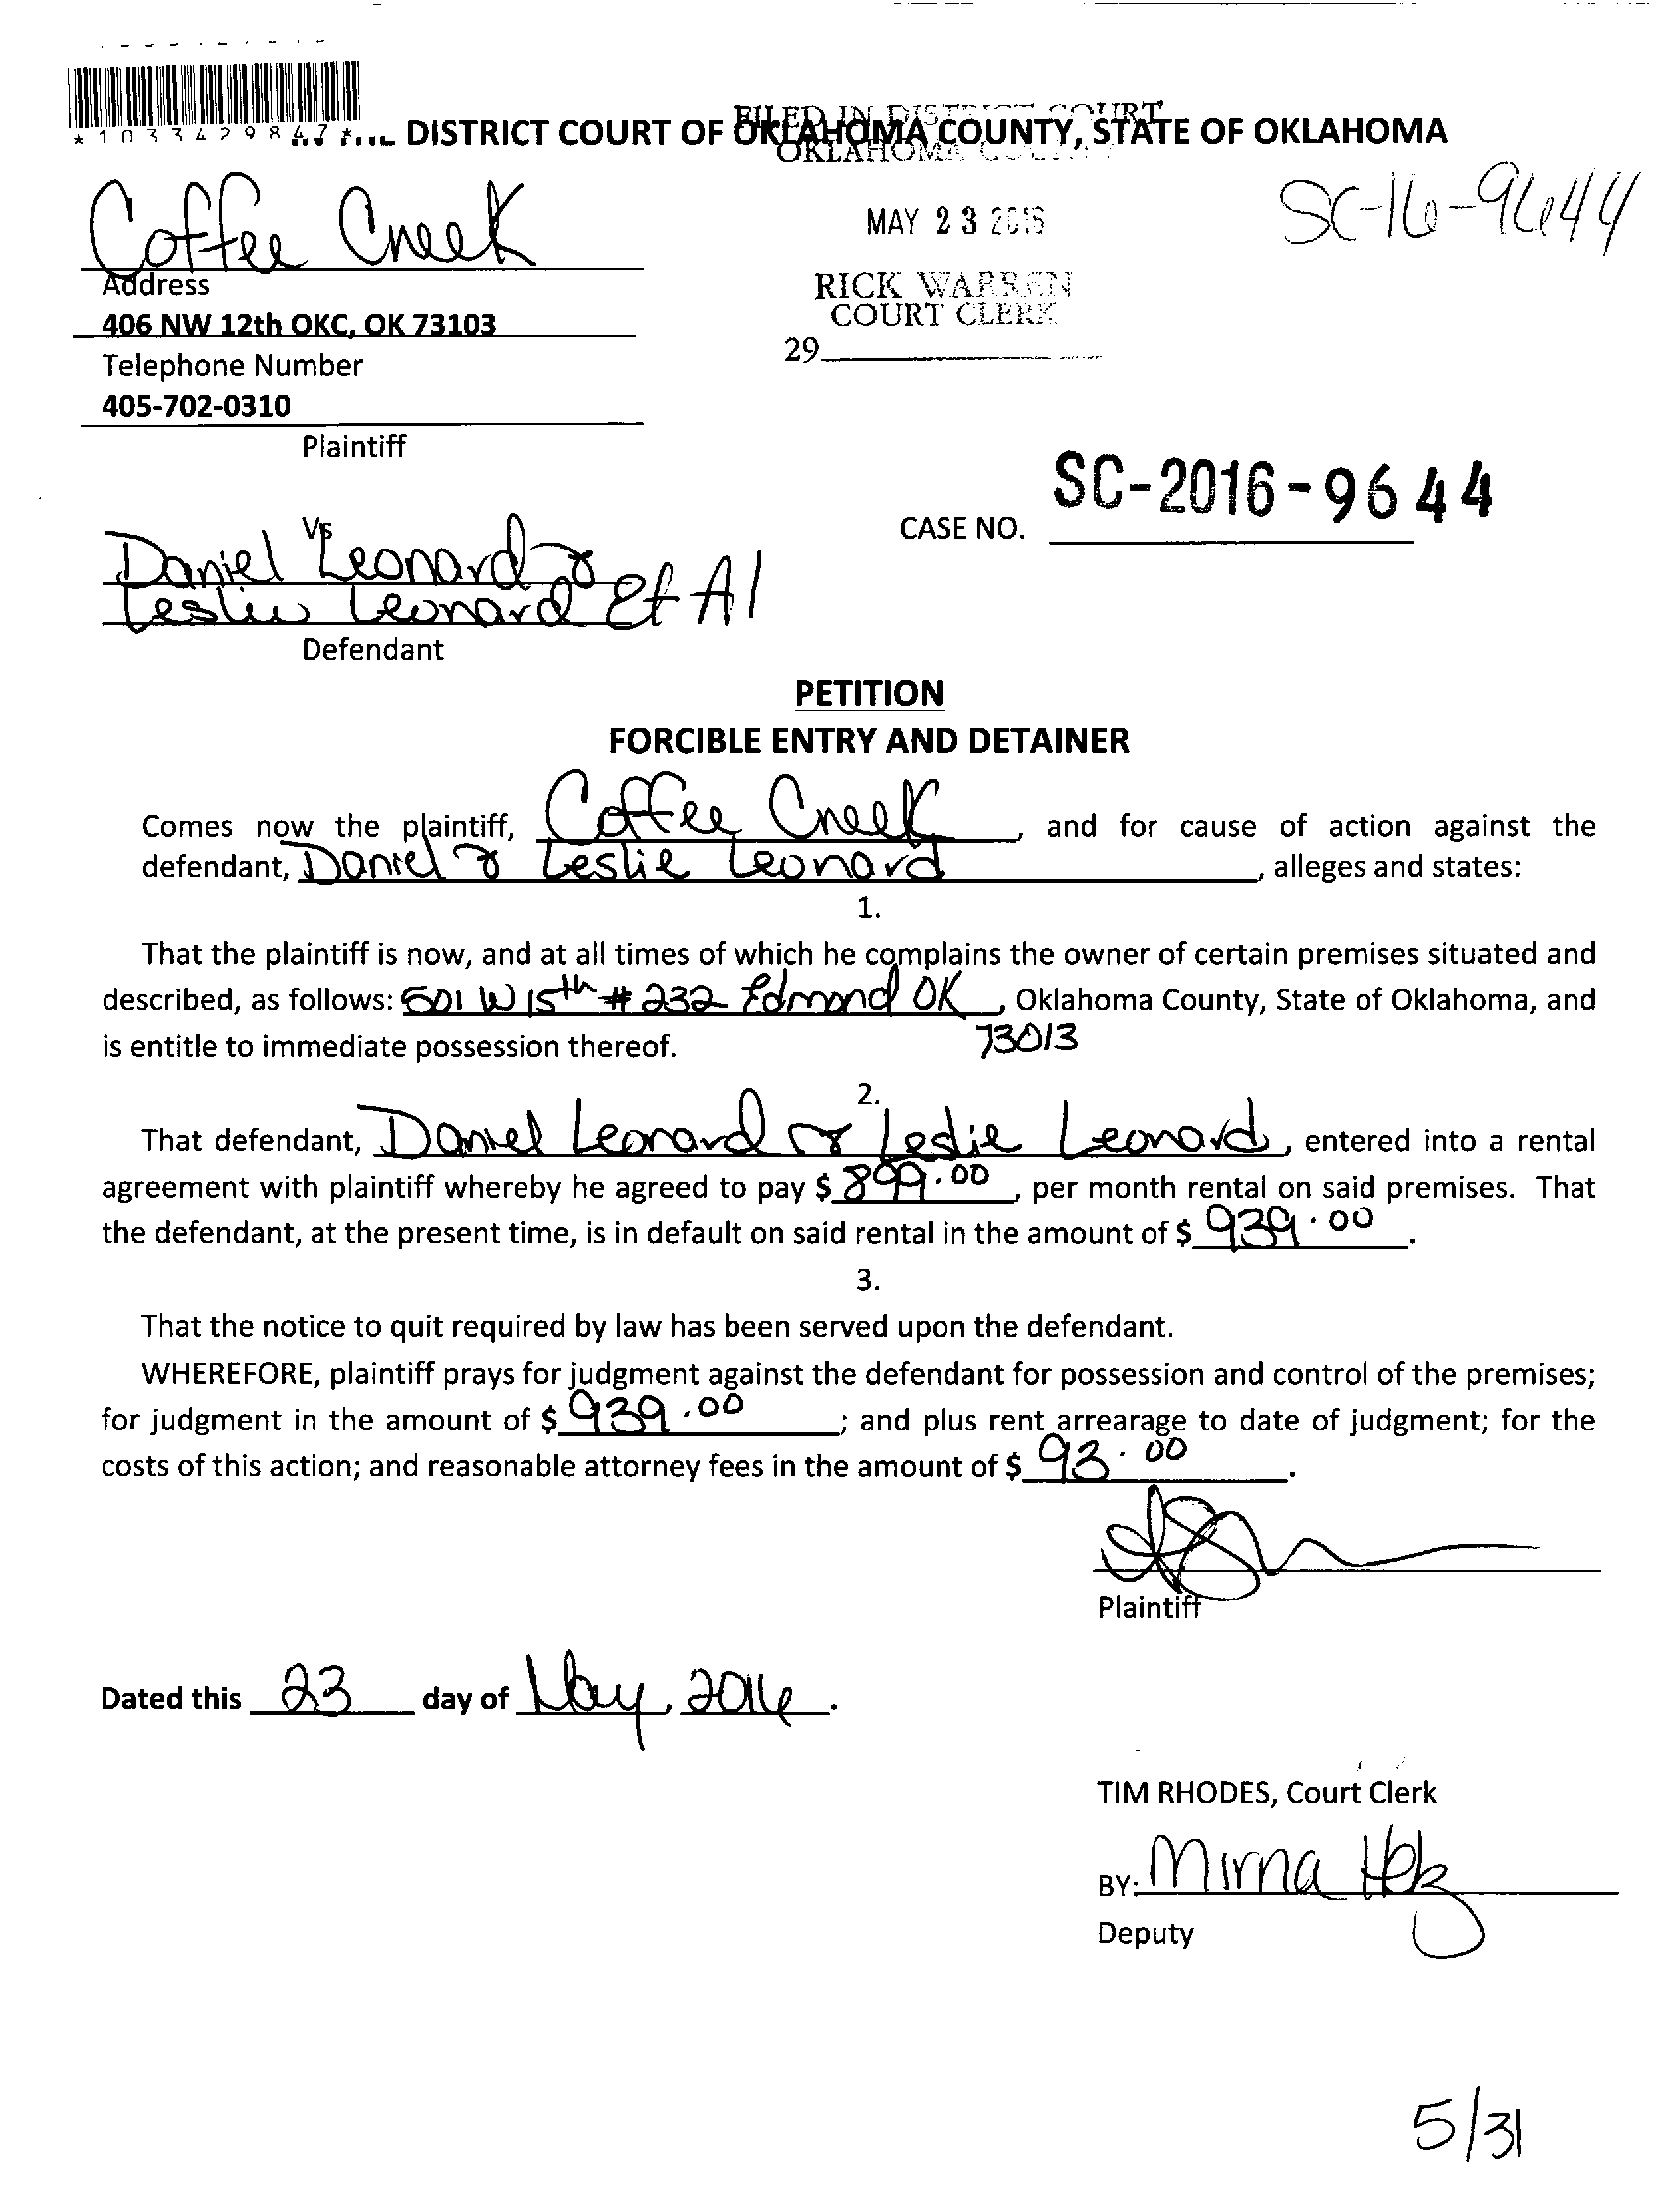 *1033429847*
DISTRICT COURT OF OKLAHOMA COUNTY, STATE OF OKLAHOMA
FILED IN DISTRICT COURT
OKLAHOMA COUNTY
Coffee Creek
SC-16-9644
MAY 23 2016
Address
RICK WARREN
COURT CLERK
406 NW 12th OKC, OK 73103
29
Telephone Number
405-702-0310
Plaintiff
SC-2016-9644
CASE NO.
Vs
Daniel Leonard &
Leslie Leonard Et Al
Defendant
PETITION
FORCIBLE ENTRY AND DETAINER
Comes now the plaintiff, Coffee Creek, and for cause of action against the
defendant, Daniel & Leslie Leonard, alleges and states:
1.
That the plaintiff is now, and at all times of which he complains the owner of certain premises situated and
described, as follows: 501 W 15th # 232 Edmond OK, Oklahoma County, State of Oklahoma, and
73013
is entitle to immediate possession thereof.
2.
That defendant, Daniel Leonard or Leslie Leonard, entered into a rental
agreement with plaintiff whereby he agreed to pay $ 899.00, per month rental on said premises. That
the defendant, at the present time, is in default on said rental in the amount of $ 939.00.
3.
That the notice to quit required by law has been served upon the defendant.
WHEREFORE, plaintiff prays for judgment against the defendant for possession and control of the premises;
for judgment in the amount of $ 939.00; and plus rent arrearage to date of judgment; for the
costs of this action; and reasonable attorney fees in the amount of $ 93.00.
Plaintiff
Dated this 23 day of May, 2016.
TIM RHODES, Court Clerk
BY: Mirna
Deputy
5/31